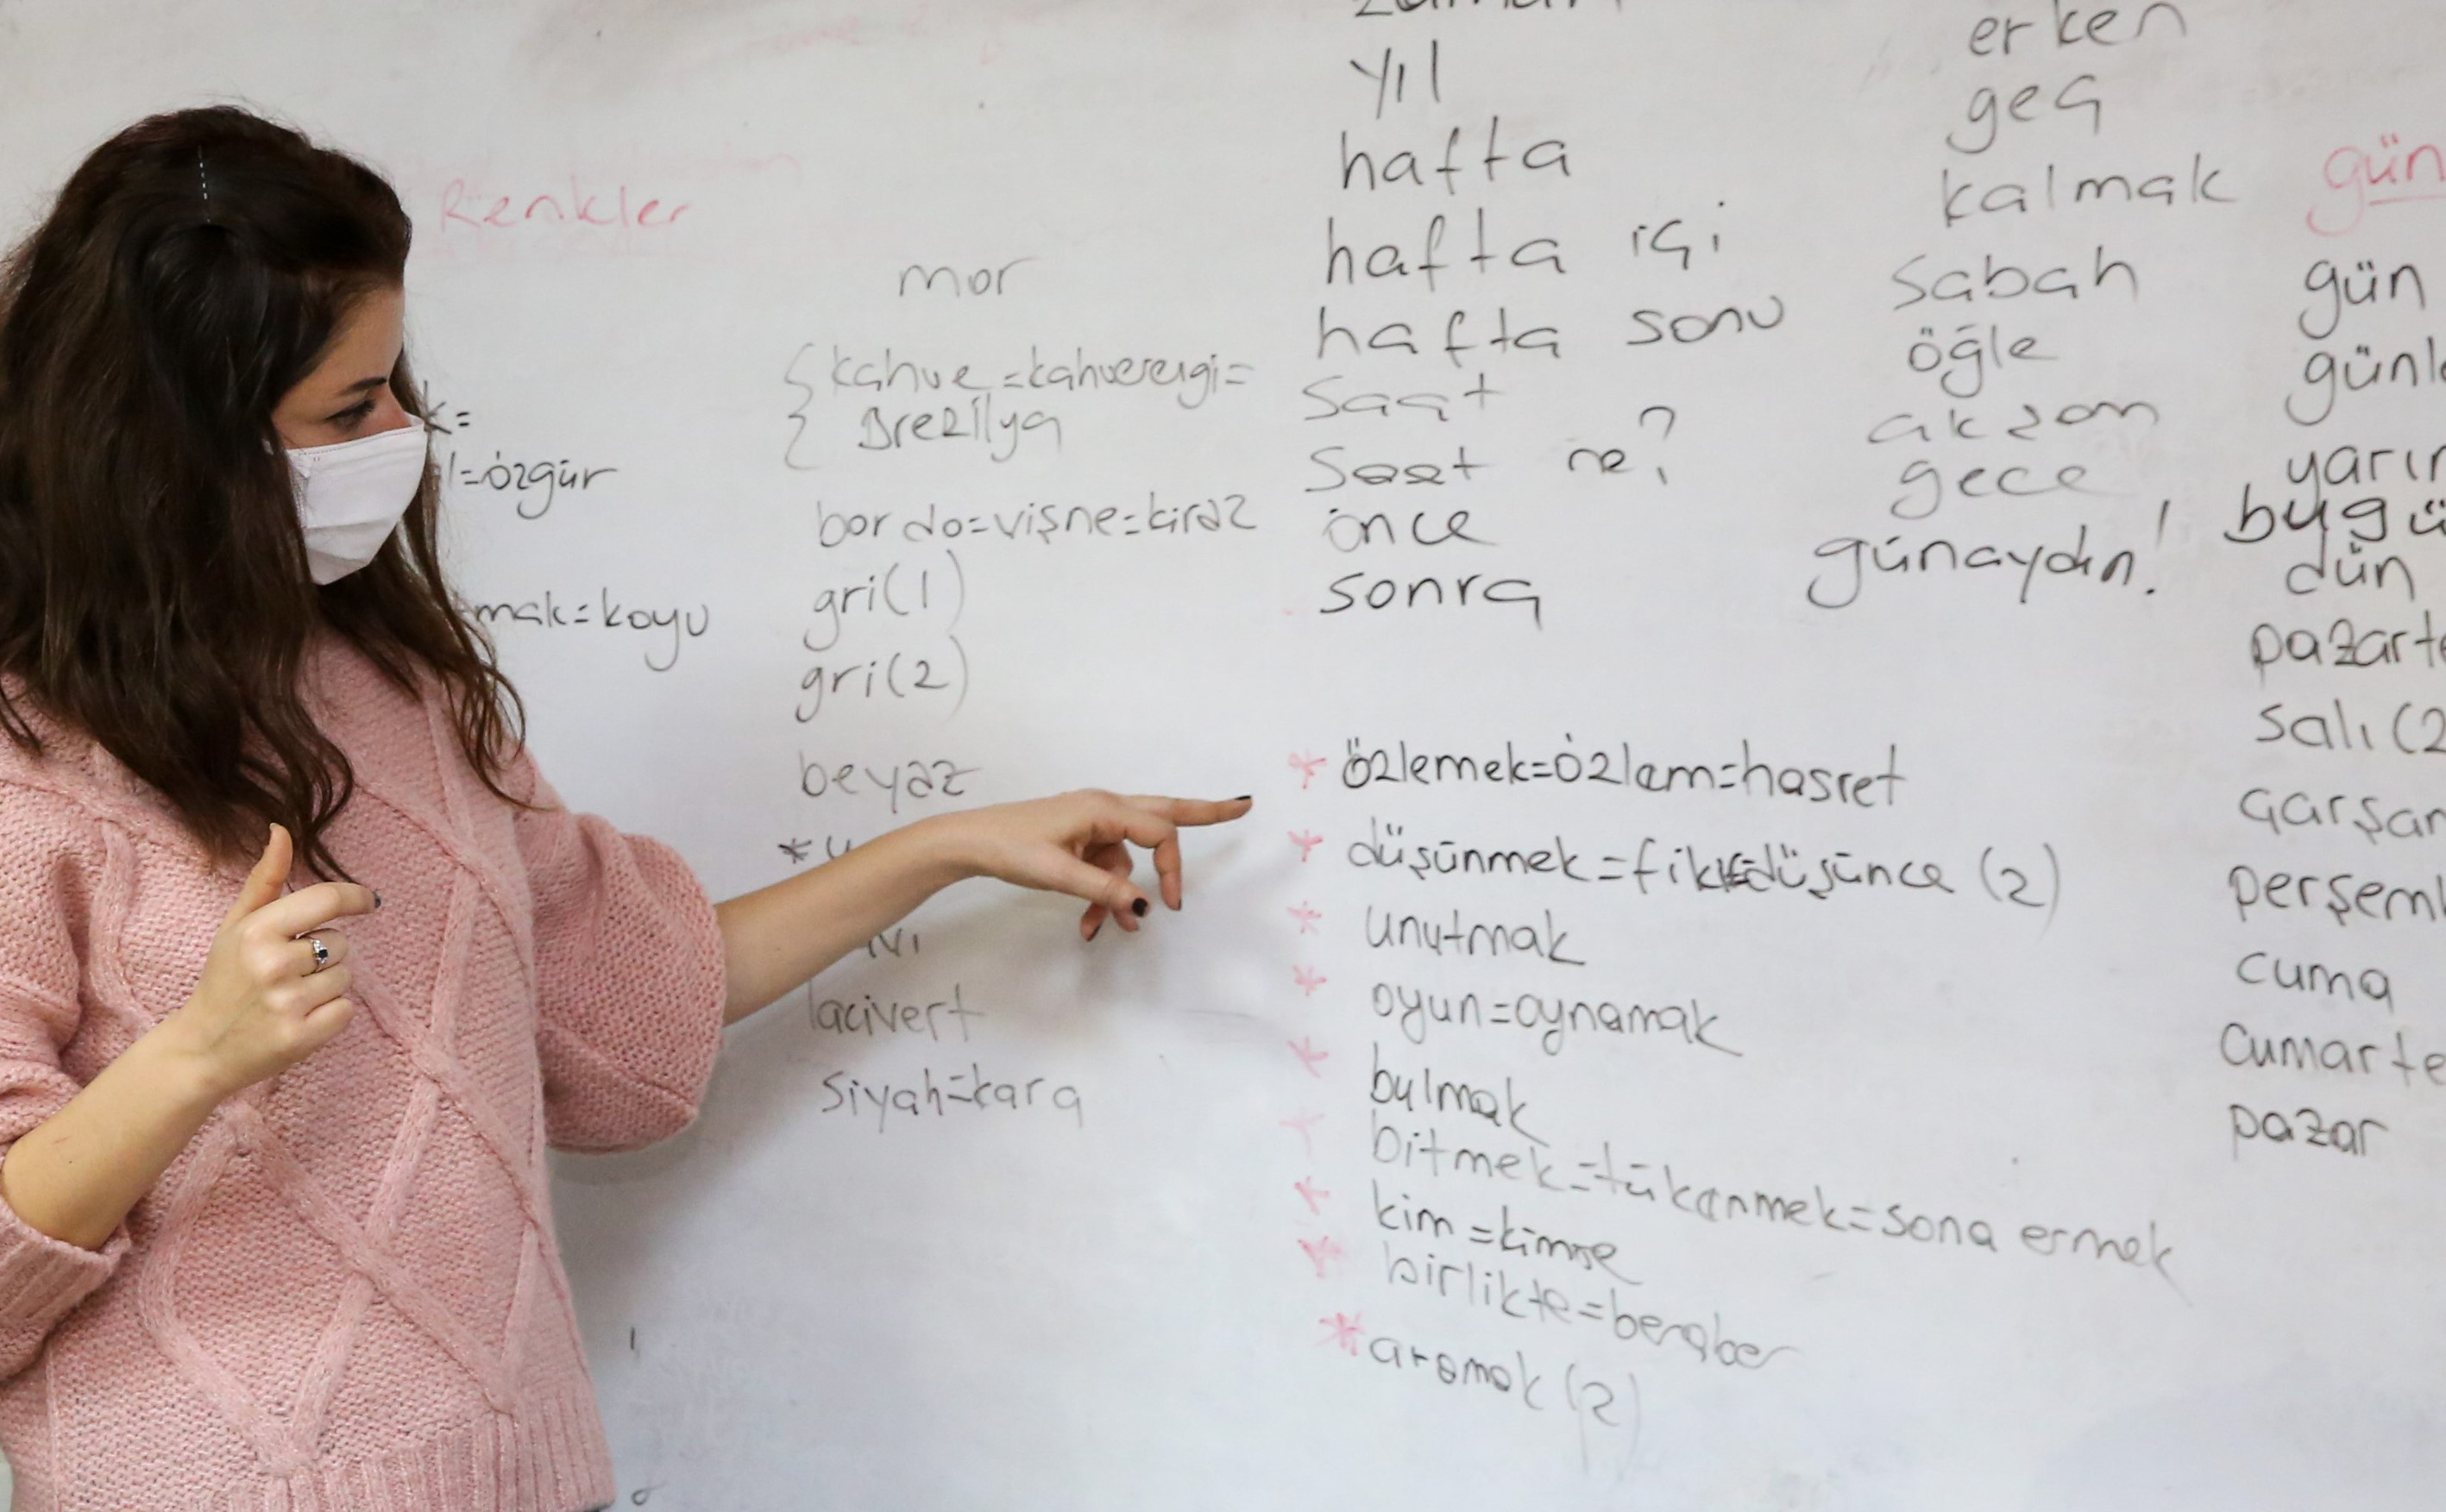 Renkler
=özgür
mak=koyu
mor
kahve=kahverengi=
Brezilya
bordo=vişne=kiraz
gri(1)
gri(2)
beyaz
*
lacivert
siyah=kara
yıl
hafta
hafta içi
hafta sonu
saat
saat ne?
önce
sonra
*özlemek=özlem=hasret
*düşünmek=fikir=düşünce (2)
*unutmak
*oyun=oynamak
*bulmak
*bitmek=tükenmek=sona ermek
*kim=kimse
*birlikte=beraber
*aramak (2)
erken
geç
kalmak
sabah
öğle
akşam
gece
günaydın!
gün
gün
günl
yarın
bugü
dün
pazarte
salı (2
çarşam
perşem
cuma
cumarte
pazar